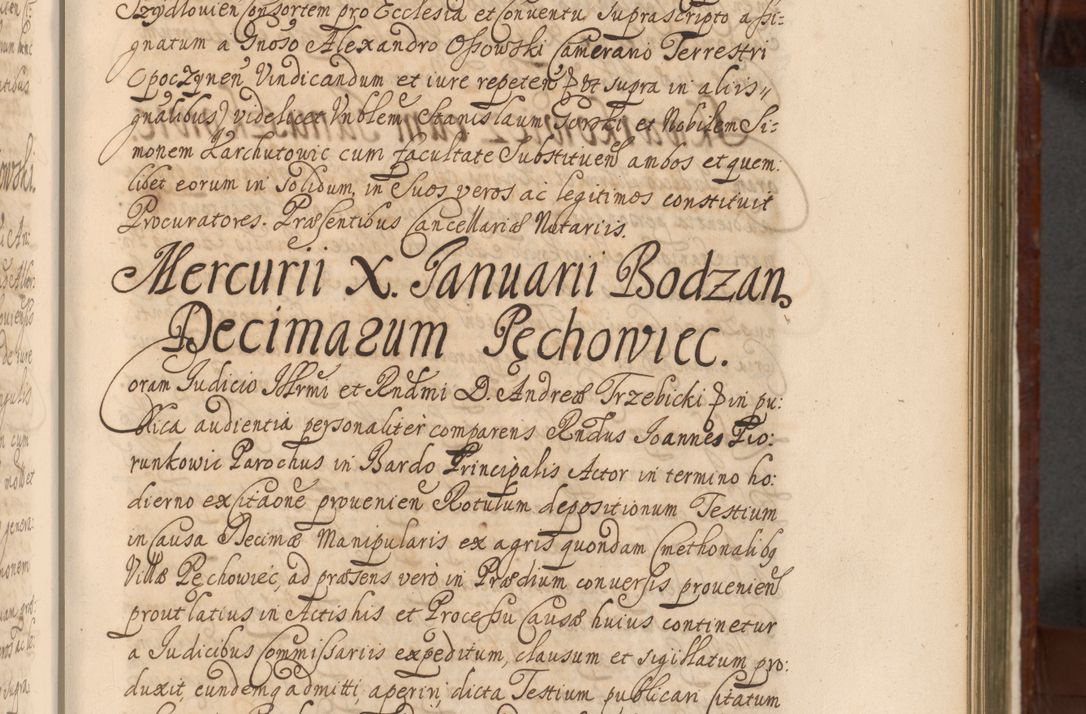 Szydlovien Consortem pro Ecclesia et Conventu suprascripto assi:
gnatum a Gnoso Alexandro Ossowski Camerario Terrestri
Opoczynen Vindicandum et iure repeten p ut supra in aliis
gnalibus videlicet Vnblem Stanislaum et Nobilem Si:
monem Karchutowic cum facultate Substituen ambos et quem:
libet eorum in solidum, in Suos veros ac legitimos constituit
Procuratores. Præsentibus Cancellariæ Notariis.
Mercurii X. Ianuarii Bodzan,
Decimarum Pęchowiec.
Coram Iudicio Illrmi et Rndmi D. Andreæ Trzebicki p in pu:
blica audientia personaliter comparens Rndus Ioannes Pio:
runkowic Parochus in Bardo Principalis Actor in termino ho:
dierno ex citaone provenien Rotulum depositionum Testium
in Causa Decimæ Manipularis ex agris quondam Cmethonalibq
Villæ Pęchowiec, ad præsens verò in Prædium conversis provenien
prout latius in Actis his et Processu Causæ huius continetur
a Iudicibus Commissariis expeditum, clausum et sigillatum pro:
duxit, eundemq admitti, aperiri, dicta Testium publicari Citatum